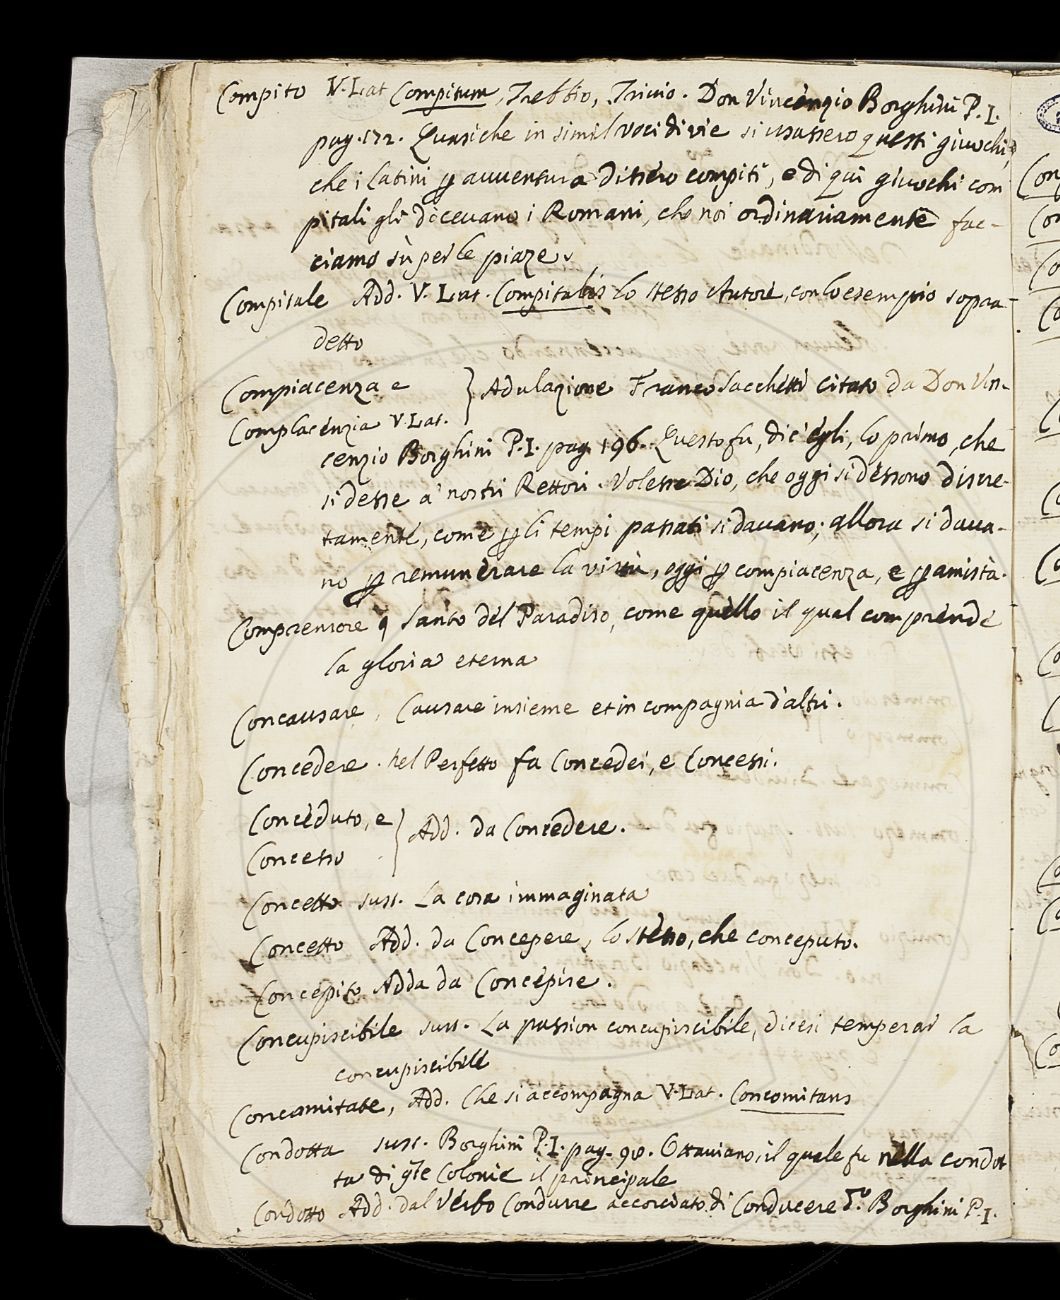 Compito V. Lat Compitum, Trebbio, Trivio. Don Vincenzio Borghini P. I.
pag. 172. Quasi che in simil voci di vie si usassero questi giuochi,
che i Latini ꝑ avventura dissero compiti, e di qui giuochi com
pitali gli dicevano i Romani, che noi ordinariamente fac-
ciamo sù per le piaze.
Compitale Add. V. Lat. Compitalis lo stesso Autore, con lo esempio sopra-
detto
Compiacenza e } Adulazione Franco Sacchetti citato da Don Vin-
Complacenzia V. Lat.
cenzio Borghini P. I. pag. 196. Questo fu, dic'egli, lo primo, che
si desse a' nostri Rettori. Volesse Dio, che oggi si dessono discre-
tamente, come ꝑ li tempi passati si davano; allora si dava-
no ꝑ remunerare la virtù, oggi ꝑ compiacenza, e ꝑ amistà.
Comprensore Santo del Paradiso, come quello il qual comprende
la gloria eterna
Concausare, Causare insieme et in compagnia d'altri.
Concedere. nel Perfetto fa Concedei, e Concessi.
Conceduto, e } Add. da Concedere.
Concesso
Concetto sust. La cosa immaginata
Concetto Add. da Concepere, lo stesso, che conceputo.
Concepito Adda da Concepire.
Concupiscibile sust. La passion concupiscibile, dicesi temperar la
concupiscibile
Concomitate, Add. Che si accompagna V. Lat. Concomitans
Condotta sust. Borghini P. I. pag. 98. Ottaviano, il quale fu nella condot
ta di q.te Colonie il principale
Condotto Add. dal Verbo Condurre accorciato di Conducere Borghini P. I.